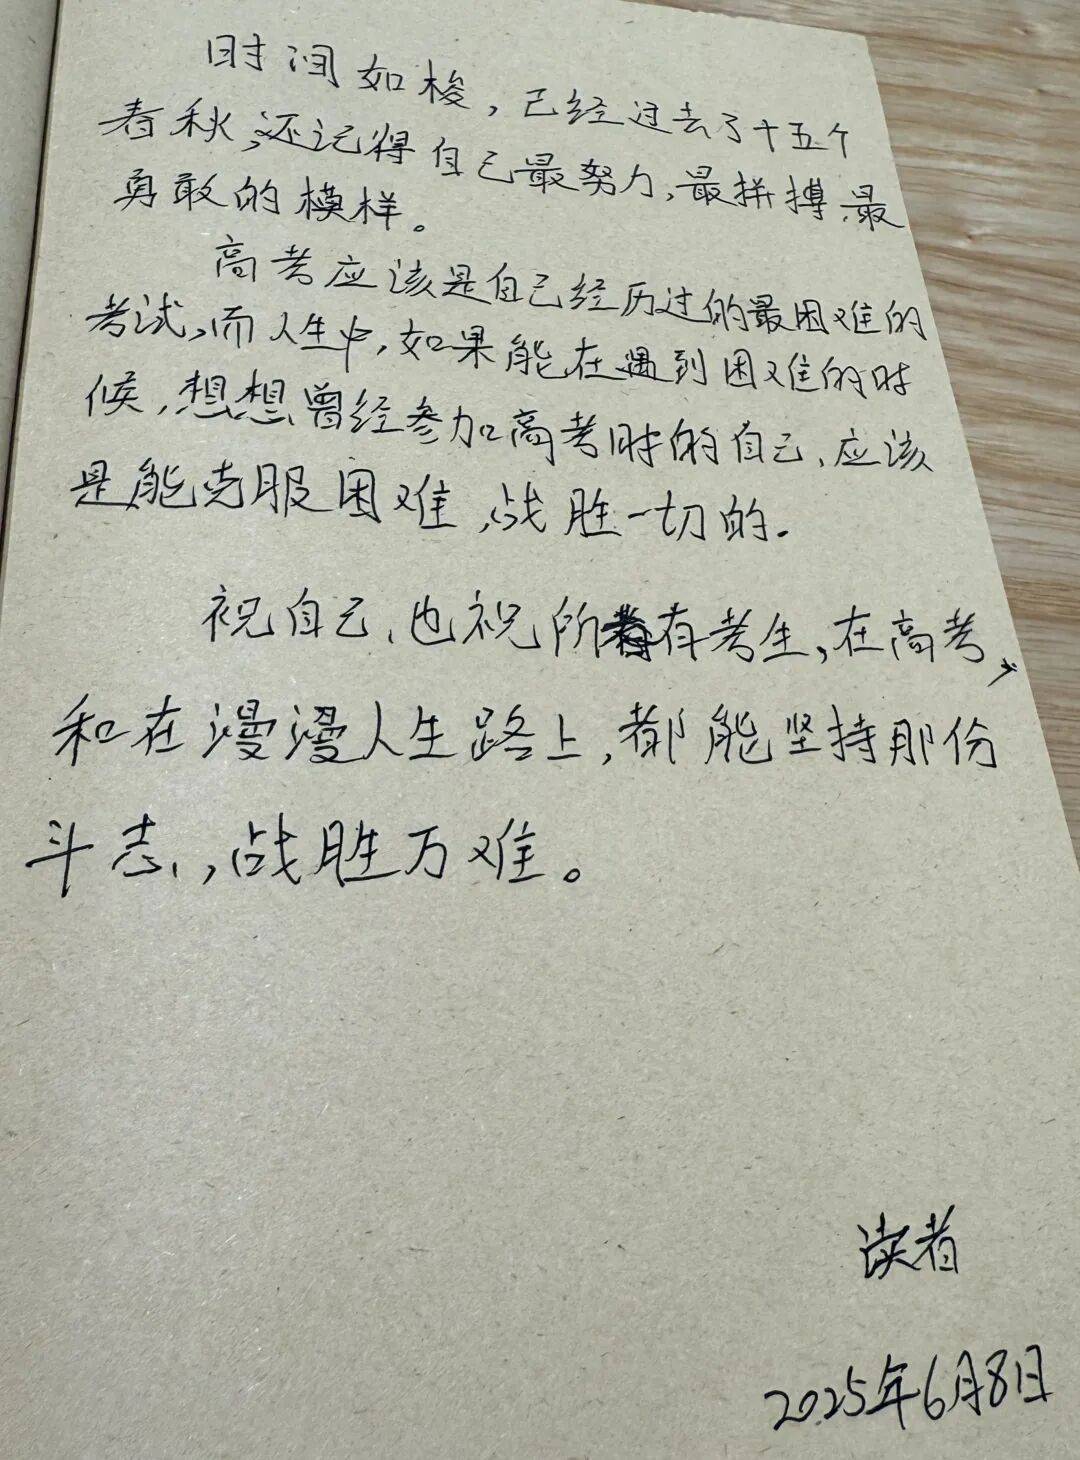 时间如梭，已经过去了十五个
春秋，还记得自己最努力，最拼搏，最
勇敢的模样。
高考应该是自己经历过的最困难的
考试，而人生中，如果能在遇到困难的时
候，想想曾经参加高考时的自己，应该
是能克服困难，战胜一切的。
祝自己，也祝所有考生，在高考，
和在漫漫人生路上，都能坚持那份
斗志，，战胜万难。
读者
2025年6月8日